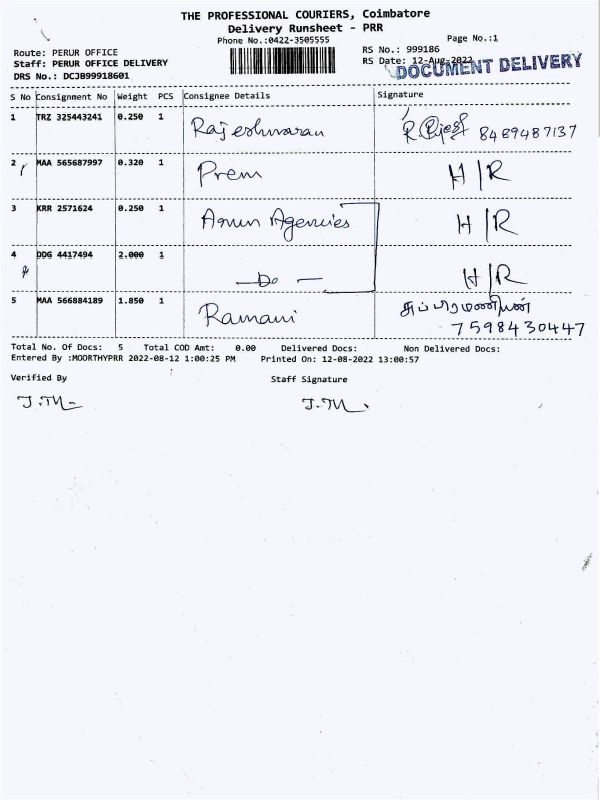 THE PROFESSIONAL COURIERS, Coimbatore
Delivery Runsheet - PRR
Phone No.:0422-3505555
Page No.:1
Route: PERUR OFFICE
RS No.: 999186
Staff: PERUR OFFICE DELIVERY
RS Date: 12-Aug-2022
DOCUMENT DELIVERY
DRS No.: DCJB99918601
S No Consignment No Weight PCS Consignee Details Signature
1 TRZ 325443241 0.250 1 Rajeshwaran 8489487137
2 MAA 565687997 0.320 1 Prem H/R
3 KRR 2571624 0.250 1 Arun Agencies H/R
4 DDG 4417494 2.000 1 —Do— H/R
5 MAA 566884189 1.850 1 Ramani சுப்பிரமணியன்
7598430447
Total No. Of Docs: 5 Total COD Amt: 0.00 Delivered Docs: Non Delivered Docs:
Entered By :MOORTHYPRR 2022-08-12 1:00:25 PM Printed On: 12-08-2022 13:00:57
Verified By Staff Signature